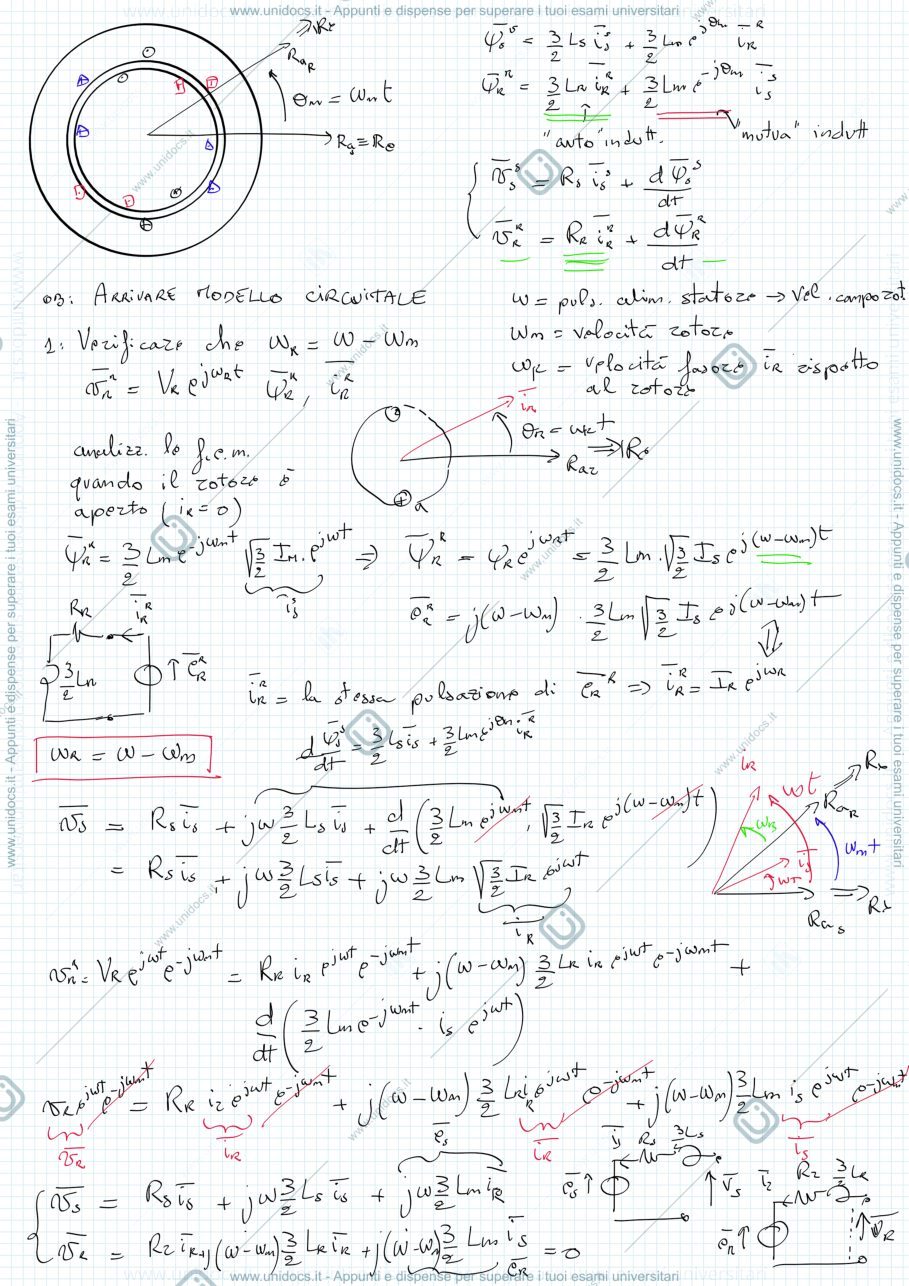 www.unidocs.it - Appunti e dispense per superare i tuoi esami universitari
θm = ωm t
Ra_R
Ra_s ≡ Re
ψ̄s^s = 3/2 Ls īs^s + 3/2 Lm e^{jθm} īR^R
ψ̄R^R = 3/2 LR īR^R + 3/2 Lm e^{-jθm} īs^s
"auto" indutt. "mutua" indutt
v̄s^s = Rs īs^s + dψ̄s^s/dt
v̄R^R = RR īR^R + dψ̄R^R/dt
OB: ARRIVARE MODELLO CIRCUITALE
ω = puls. alim. statore → vel. campo rot
1: Verificare che ωR = ω - ωm
ωm = velocità rotore
v̄R^R = VR e^{jωRt} ψ̄R^R, īR^R
ωR = velocità fasore īR rispetto
al rotore
īR
θR = ωR t
Ra2 ⇒ Re
a
analizz. le f.e.m.
quando il rotore è
aperto (iR = 0)
ψ̄R^R = 3/2 Lm e^{-jωmt} √(3/2) IM · e^{jωt} ⇒ ψ̄R^R = ψR e^{jωRt} = 3/2 Lm · √(3/2) Is e^{j(ω-ωm)t}
īs^s
ēR^R = j(ω-ωm) · 3/2 Lm √(3/2) Is e^{j(ω-ωm)t}
RR īR^R
3/2 LR ↑ ēR^R
īR^R = la stessa pulsazione di ēR^R ⇒ īR^R = IR e^{jωR}
ωR = ω - ωm
dψ̄s^s/dt = 3/2 Ls īs + 3/2 Lm e^{jθm} īR^R
v̄s = Rs īs + jω 3/2 Ls īs + d/dt (3/2 Lm e^{jωmt} · √(3/2) IR e^{j(ω-ωm)t})
= Rs īs + jω 3/2 Ls īs + jω 3/2 Lm √(3/2) IR e^{jωt}
īR
iR ωt Ra_R
ωR ωmt
īs
ωt
Ra_s
vR^R = VR e^{jωt} e^{-jωmt} = RR iR e^{jωt} e^{-jωmt} + j(ω-ωm) 3/2 LR iR e^{jωt} e^{-jωmt} +
d/dt (3/2 Lm e^{-jωmt} · is e^{jωt})
vR e^{jωt} e^{-jωmt} = RR i2 e^{jωt} e^{-jωmt} + j(ω-ωm) 3/2 LR iR e^{jωt} e^{-jωmt} + j(ω-ωm) 3/2 Lm is e^{jωt} e^{-jωmt}
v̄R īR īR īs
ēs
v̄s = Rs īs + jω 3/2 Ls īs + jω 3/2 Lm īR
v̄R = R2 īR + j(ω-ωm) 3/2 LR īR + j(ω-ωm) 3/2 Lm īs = 0
ēR
īs Rs 3/2 Ls
ēs ↑ ↑ v̄s
ī2 R2 3/2 LR
ēR ↑ ↑ v̄R
www.unidocs.it - Appunti e dispense per superare i tuoi esami universitari